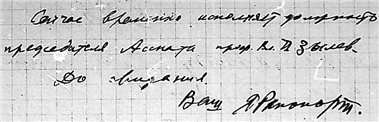 Сейчас временно исполняет должность
председателя Аснота проф. Вл. П. Зылев.
До свидания
Ваш Я Рапопорт.